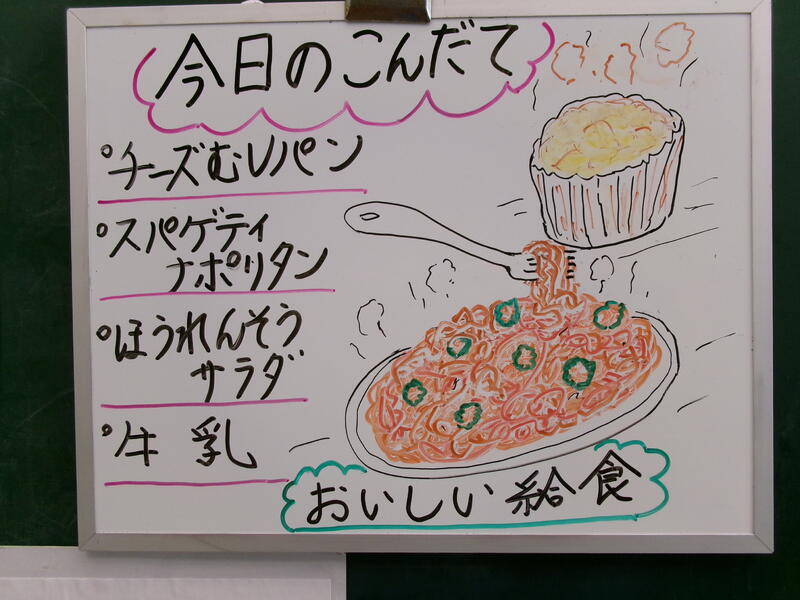 今日のこんだて
°チーズむしパン
°スパゲティ
ナポリタン
°ほうれんそう
サラダ
°牛乳
おいしい給食